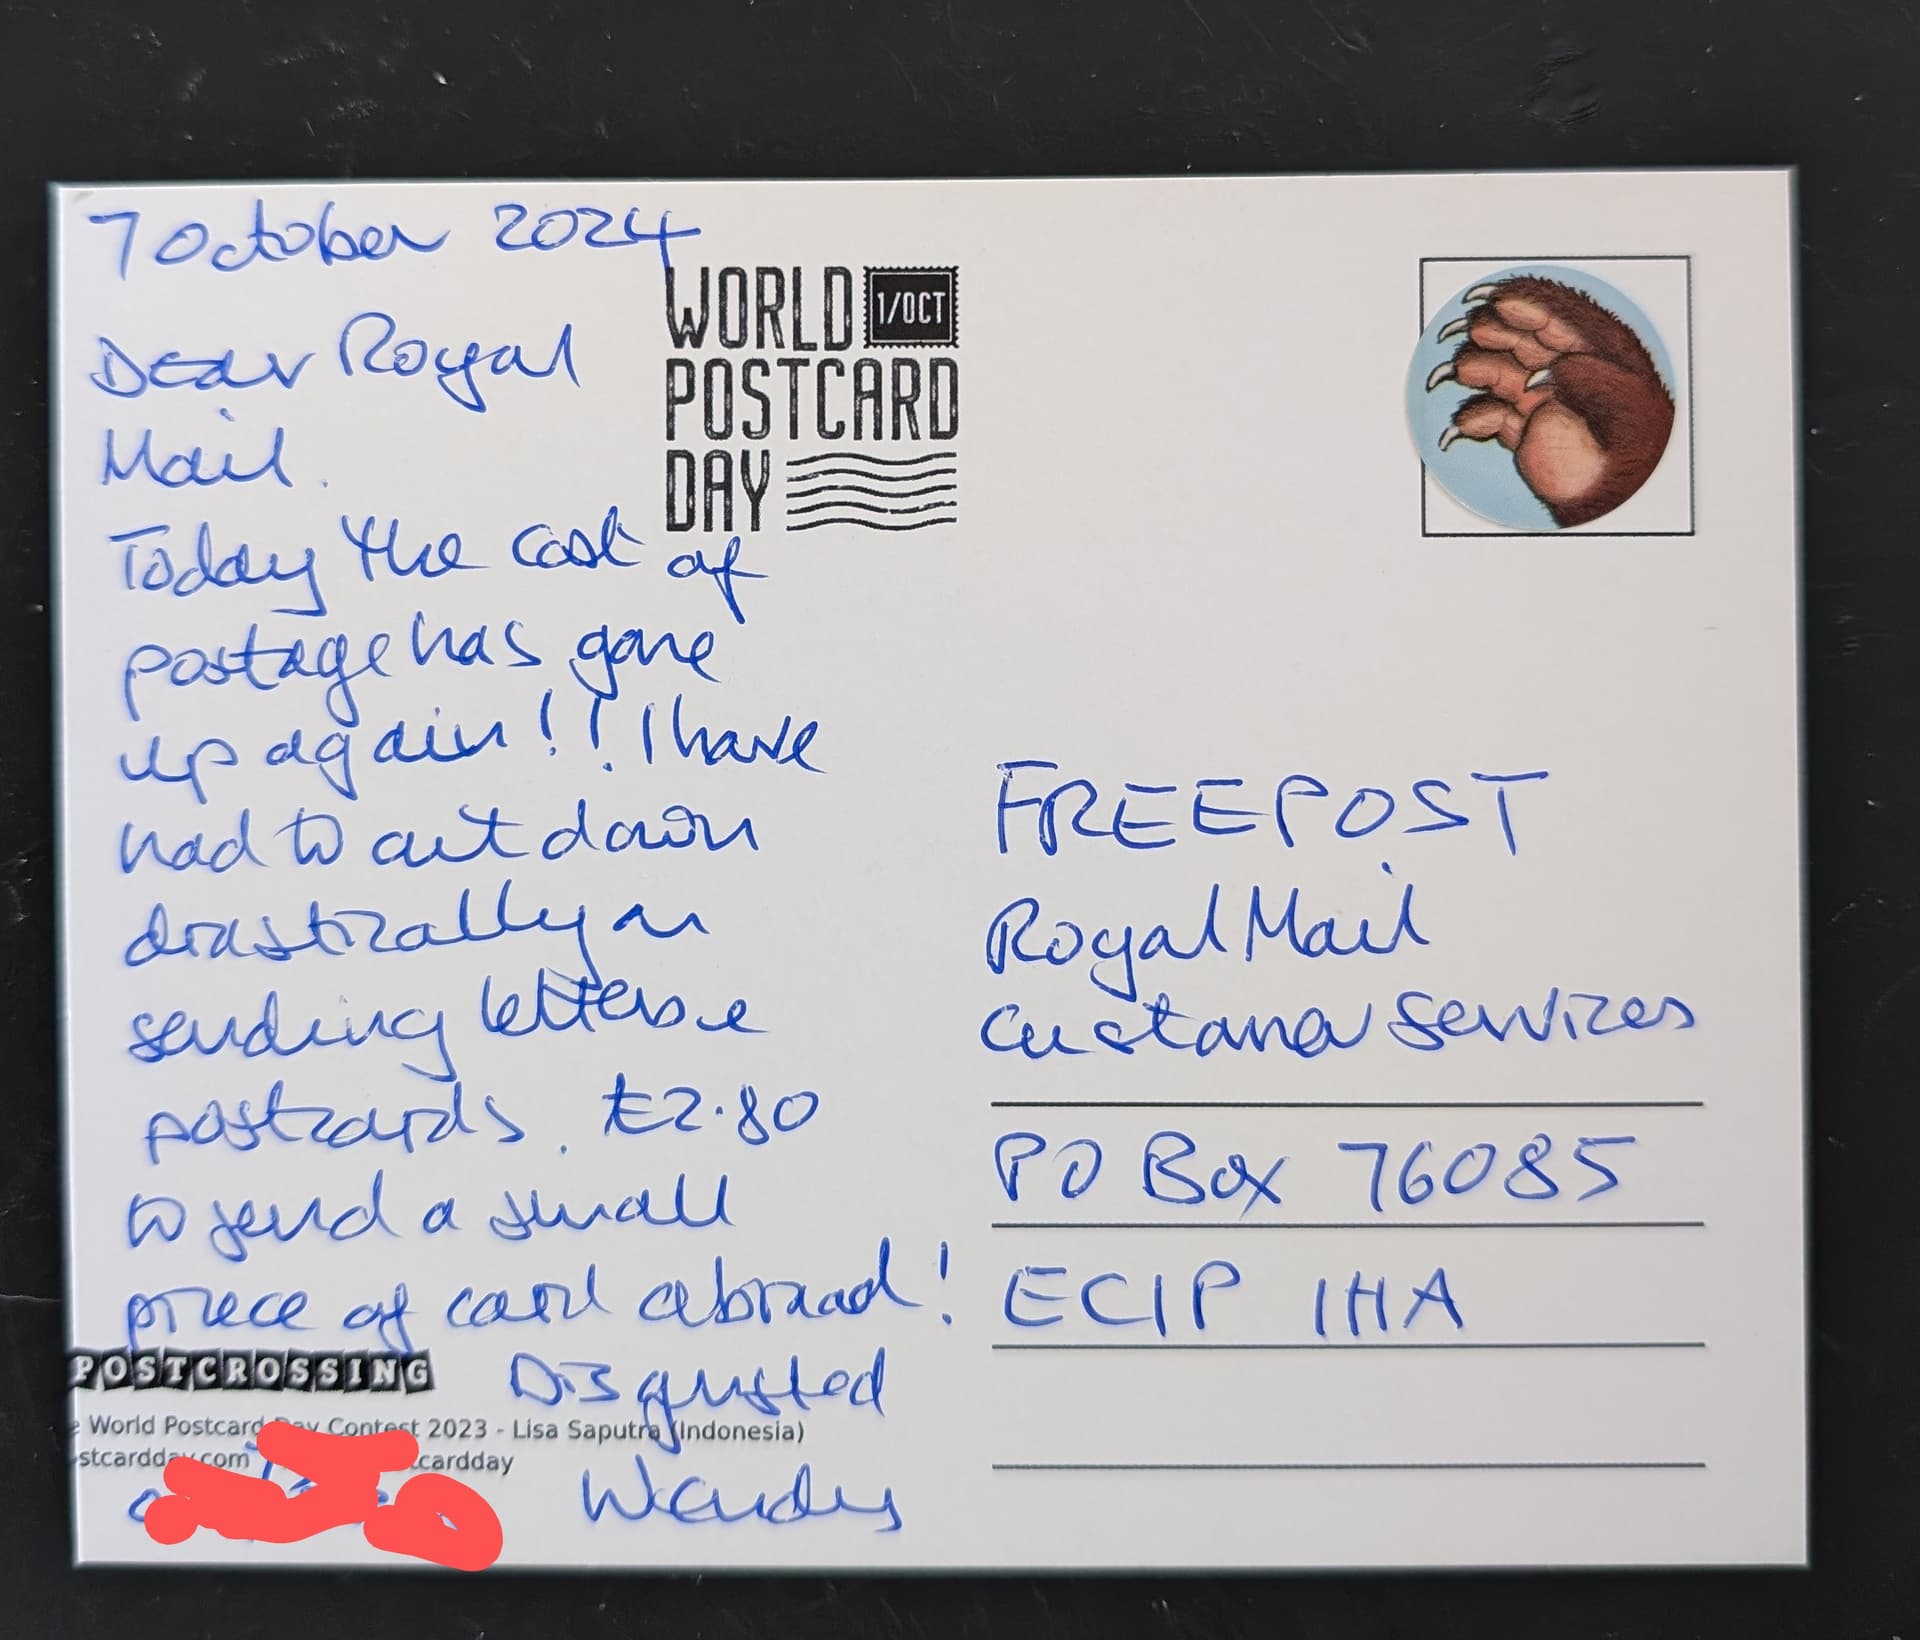 7 October 2024
WORLD 1/OCT
POSTCARD
DAY
Dear Royal
Mail.
Today the cost of
postage has gone
up again!! I have
had to cut down
drastically on
sending letters e
postcards. £2.80
to send a small
piece of card abroad!
Disgusted
Wendy
FREEPOST
Royal Mail
Customer Services
PO Box 76085
EC1P 1HA
POSTCROSSING
World Postcard Day Contest 2023 - Lisa Saputra (Indonesia)
stcardday.com cardday